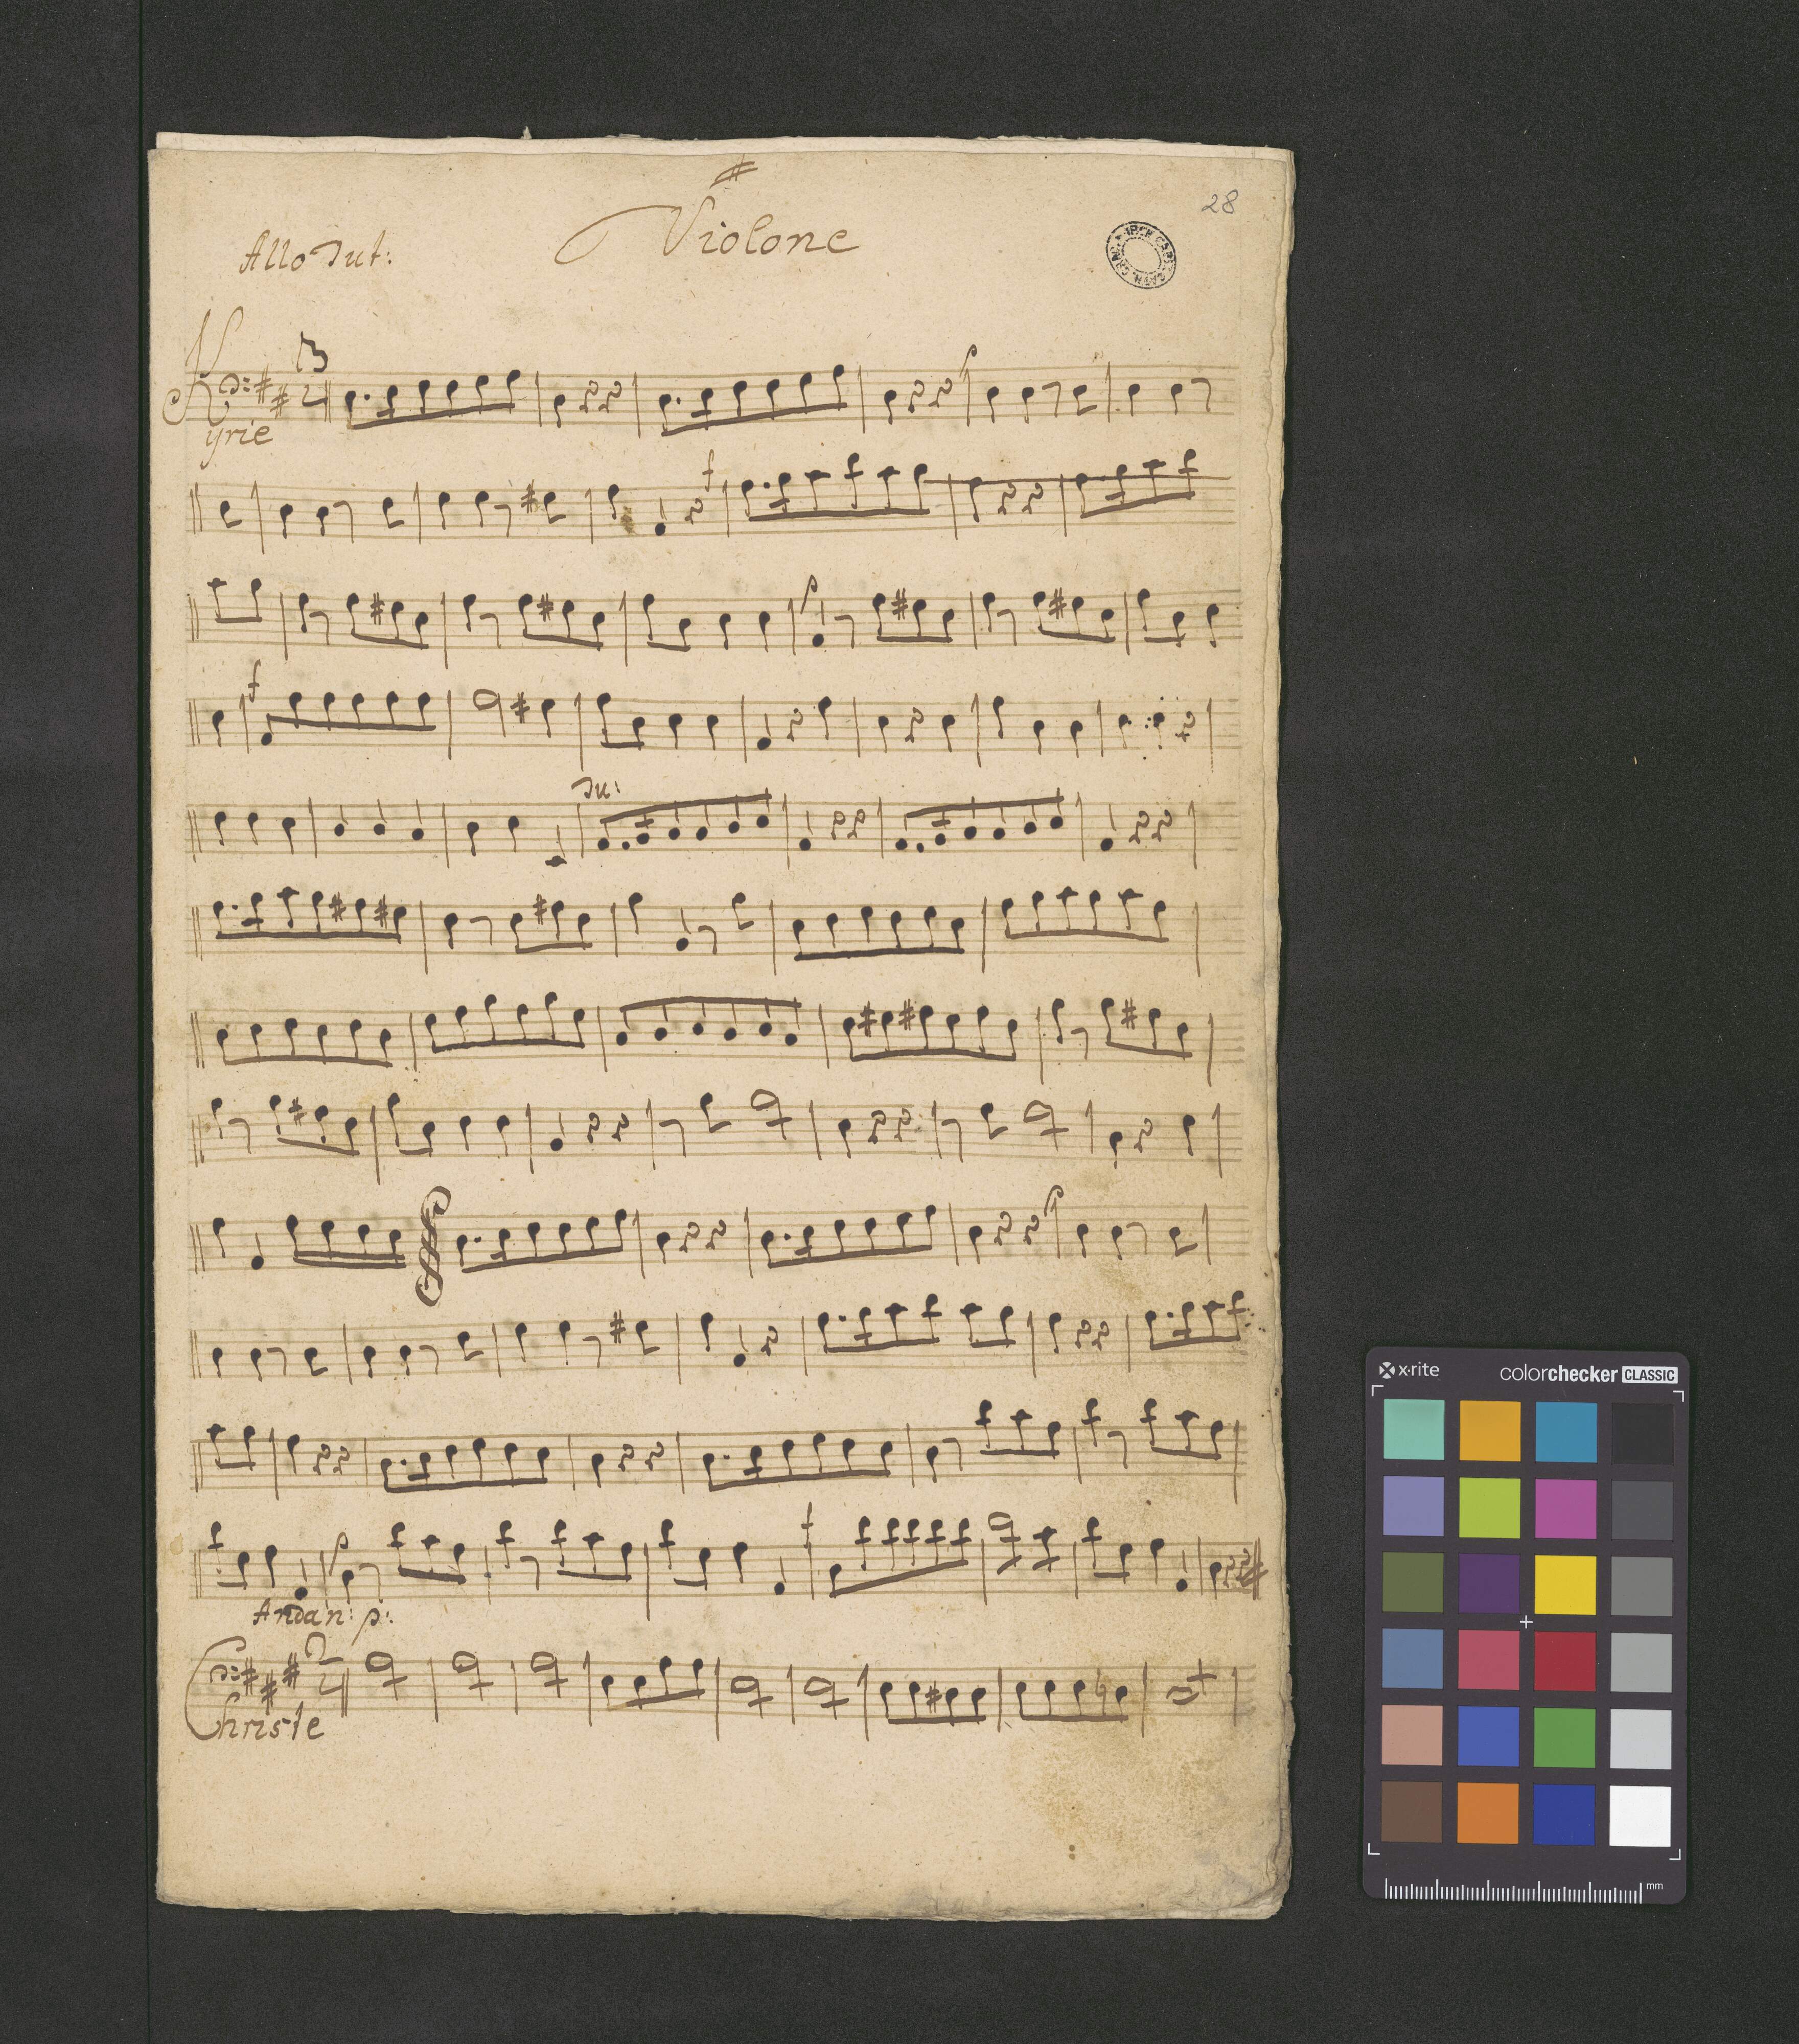 28
Violone
Allo Tut:
3
4
Kyrie
p
f
p
f
Tu:
p
p
f
Andan: p:
2
4
Christe
x-rite
colorchecker CLASSIC
mm